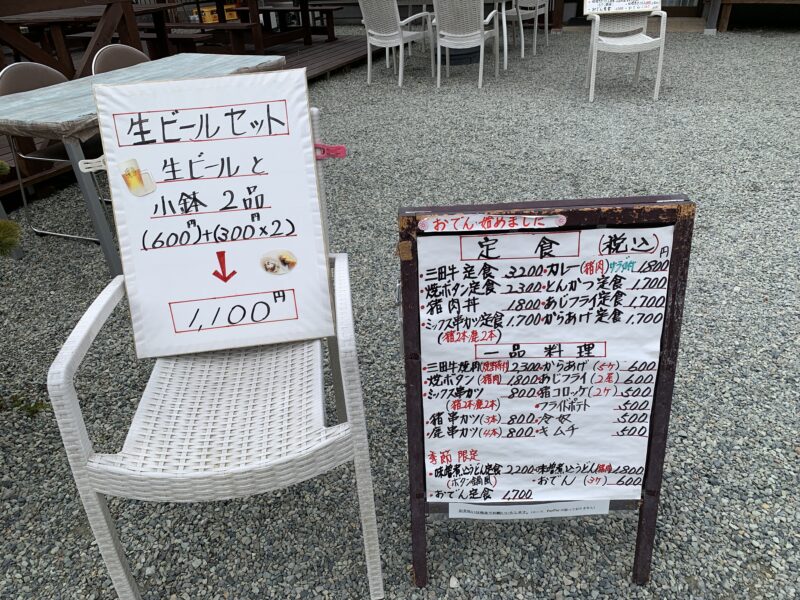 生ビールセット
生ビールと
小鉢 2品
(600円)+(300円×2)
↓
1,100円
おでん始めました
定食 (税込)
・三田牛定食 3200 ・カレー(猪肉)サラダ付 1800円
・焼ボタン定食 2300 ・とんかつ定食 1,700
・猪肉丼 1800 ・あじフライ定食 1,700
・ミックス串カツ定食 1,700 ・からあげ定食 1,700
(猪2本・鹿2本)
一品料理
・三田牛焼肉 2300 ・からあげ(5ケ) 600
・焼ボタン(猪肉) 1800 ・あじフライ(2尾) 600
・ミックス串カツ 800 ・猪コロッケ(2ケ) 500
(猪2本・鹿2本) ・フライドポテト 500
・猪串カツ(3本) 800 ・冷奴 500
・鹿串カツ(4本) 800 ・キムチ 500
季節限定
・味噌煮込うどん定食 2,200 ・味噌煮込うどん 1,800
(ボタン鍋風) ・おでん(3ケ) 600
・おでん定食 1,700